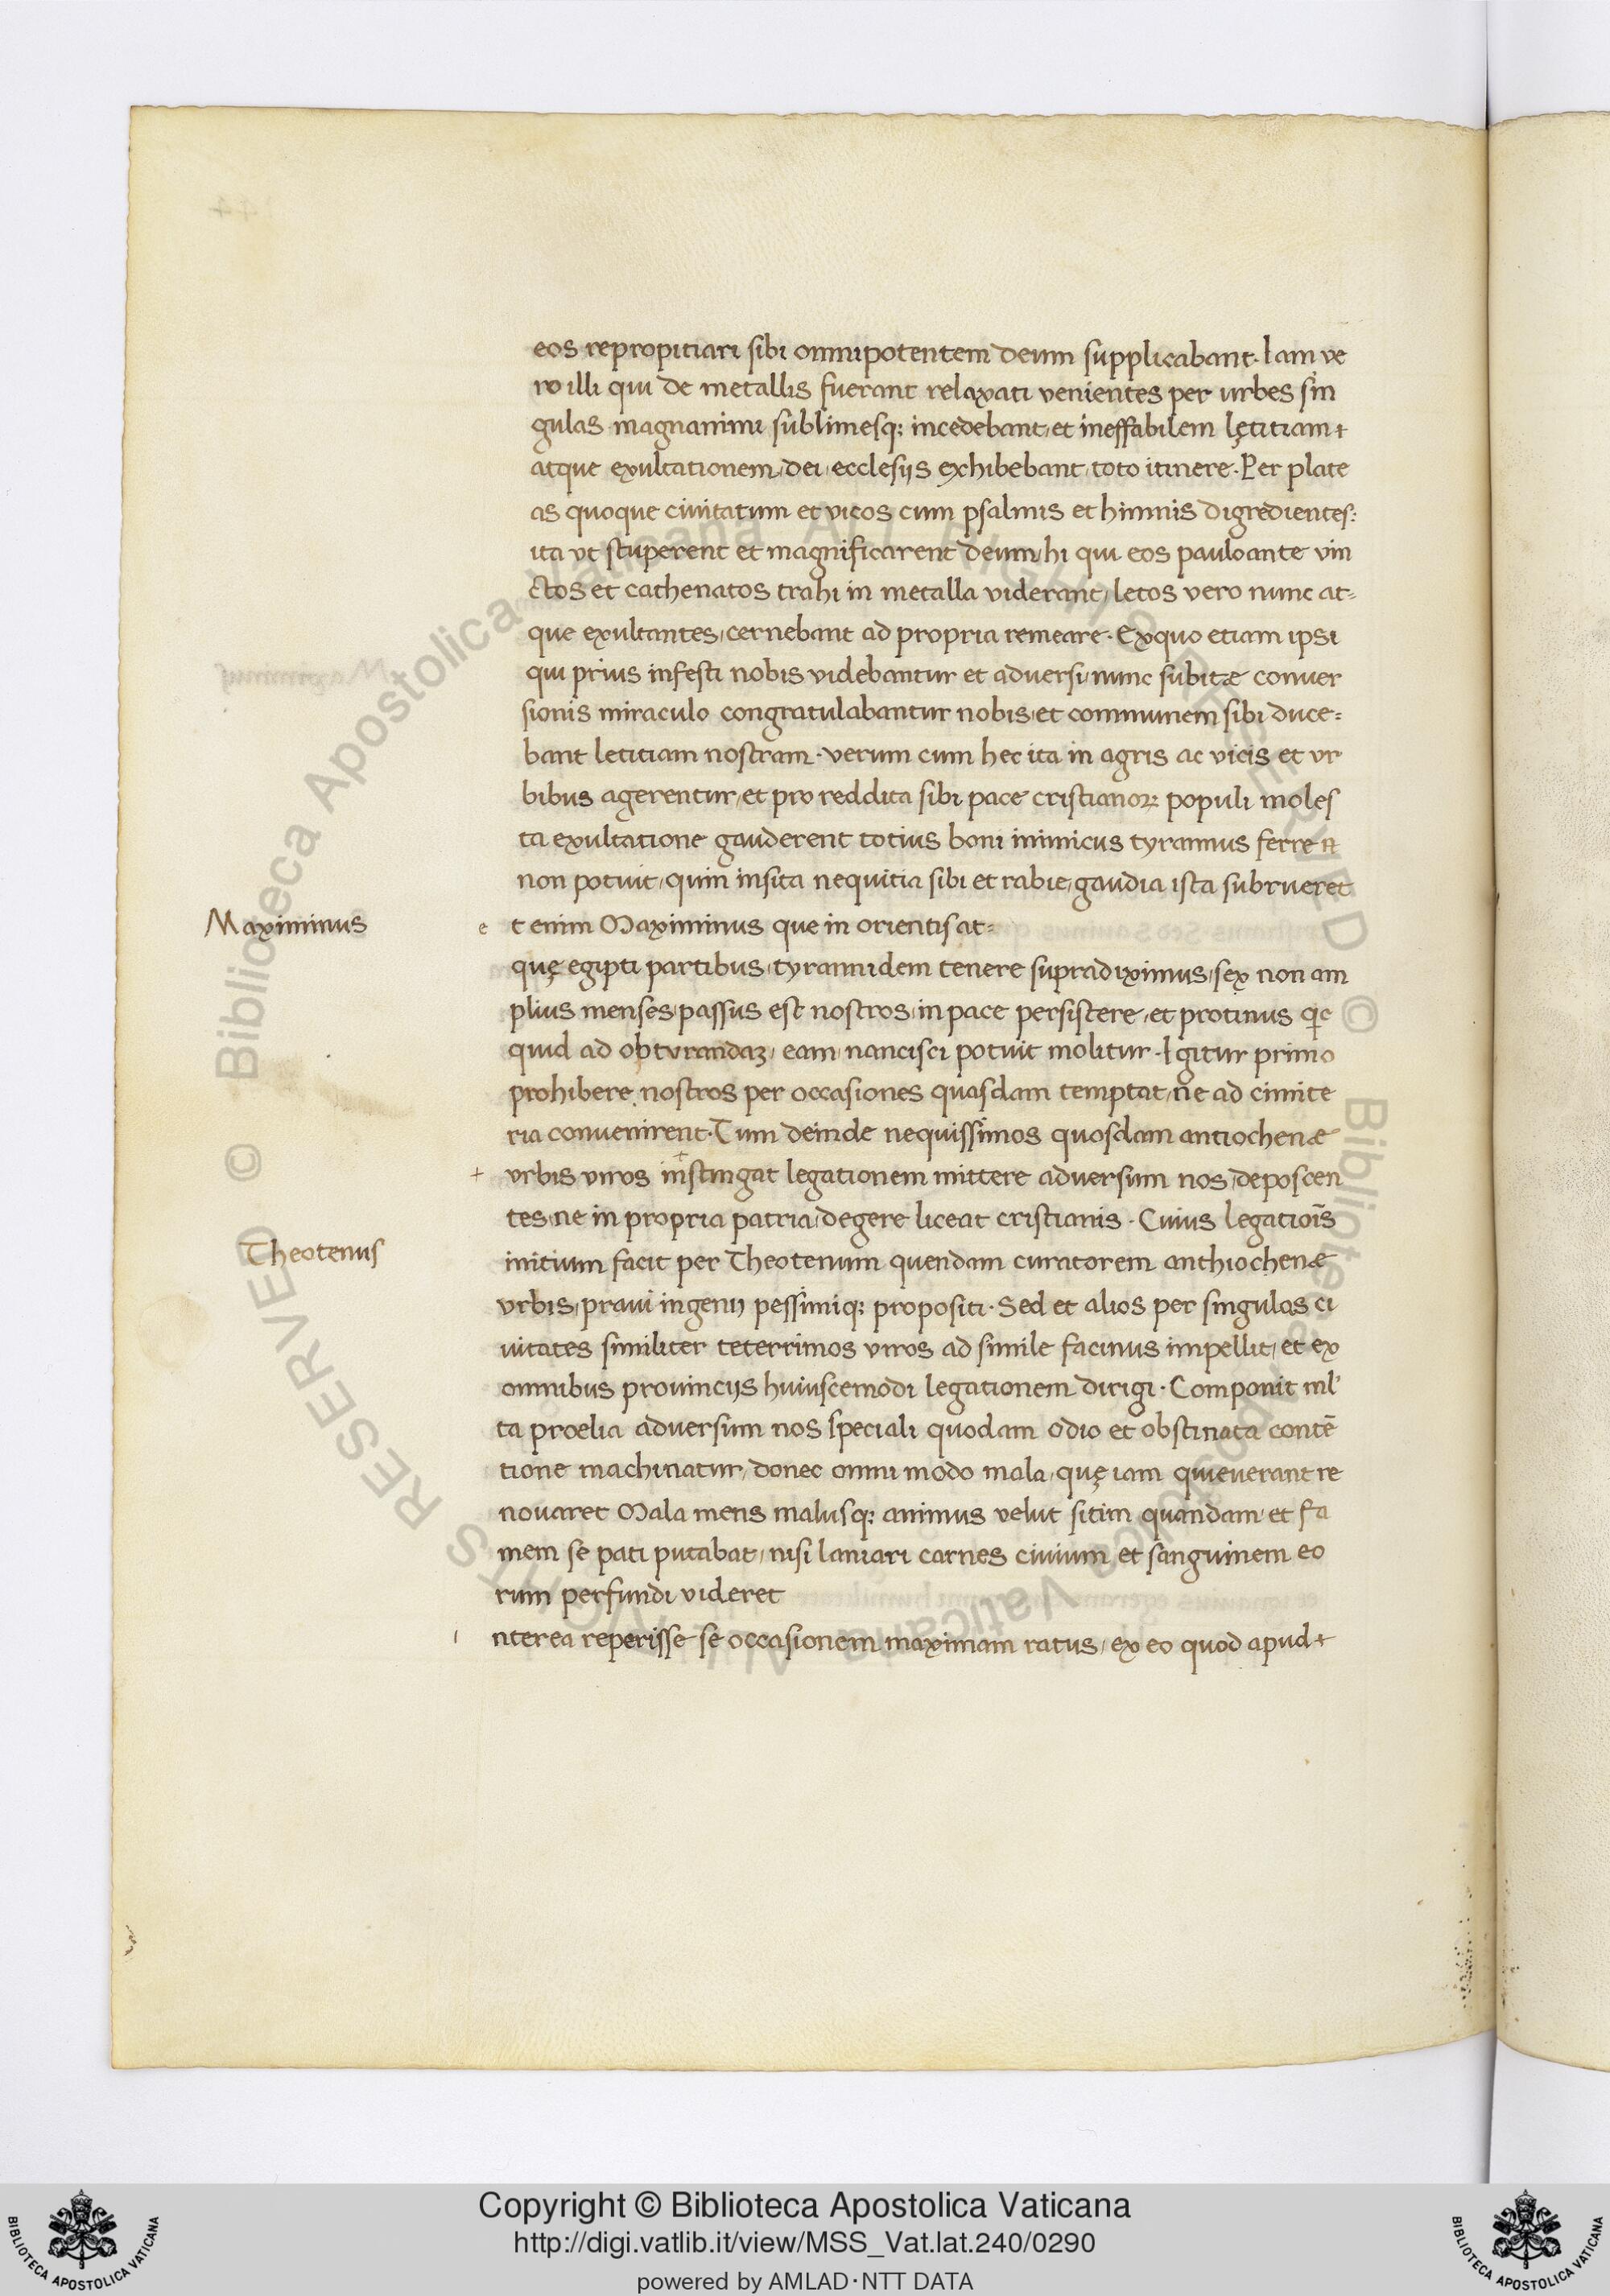 eos repropitiari sibi omnipotentem deum supplicabant. Iam ve
ro illi qui de metallis fuerant relaxati venientes per urbes sin
gulas magnanimi sublimesq; incedebant, et ineffabilem lętitiam
atque exultationem, dei, ecclesijs exhibebant, toto itinere. Per plate
as quoque civitatum et vicos cum psalmis et himnis digredientes:
ita vt stuperent et magnificarent deum, hi qui eos pauloante vin
ctos et cathenatos trahi in metalla viderant, letos vero nunc at=
que exultantes, cernebant ad propria remeare. Exquo etiam ipsi
qui prius infesti nobis videbantur et adversi, nunc subitæ conver
sionis miraculo congratulabantur nobis, et communem sibi duce=
bant letitiam nostram. verum cum hec ita in agris ac vicis et vr
bibus agerentur, et pro reddita sibi pace cristianoꝝ populi moles
ta exultatione gauderent totius boni inimicus tyrannus ferre
non potuit, quin insita nequitia sibi et rabie, gaudia ista subrueret
Maximinus
e t enim Maximinus que in orientis at=
quę egipti partibus, tyrannidem tenere supradiximus, sex non am
plius menses, passus est nostros, in pace persistere, et protinus qic
quid ad obturandaꝫ, eam, nancisci potuit molitur. Igitur primo
prohibere nostros per occasiones quasdam temptat, ne ad cimite
ria convenirent. Tum deinde nequissimos quosdam antiochenæ
+ vrbis viros instingat legationem mittere adversum nos, deposcen
tes, ne in propria patria, degere liceat cristianis. Cuius legatiōis
Theotenus
initium facit per Theotenum quendam curatorem anthiochenæ
vrbis, pravi ingenij pessimiq; propositi. Sed et alios per singulas ci
vitates similiter teterrimos viros ad simile facinus impellit, et ex
omnibus provincijs huiuscemodi legationem dirigi. Componit ml'
ta proelia adversum nos speciali quodam odio et obstinata contē
tione machinatur, donec omni modo mala, quę iam quieverant re
novaret Mala mens malusq; animus velut sitim quandam et fa
mem se pati putabat, nisi laniari carnes civium et sanguinem eo
rum perfundi videret
i nterea reperisse se occasionem maximam ratus, ex eo quod apud
Copyright © Biblioteca Apostolica Vaticana
http://digi.vatlib.it/view/MSS_Vat.lat.240/0290
powered by AMLAD·NTT DATA